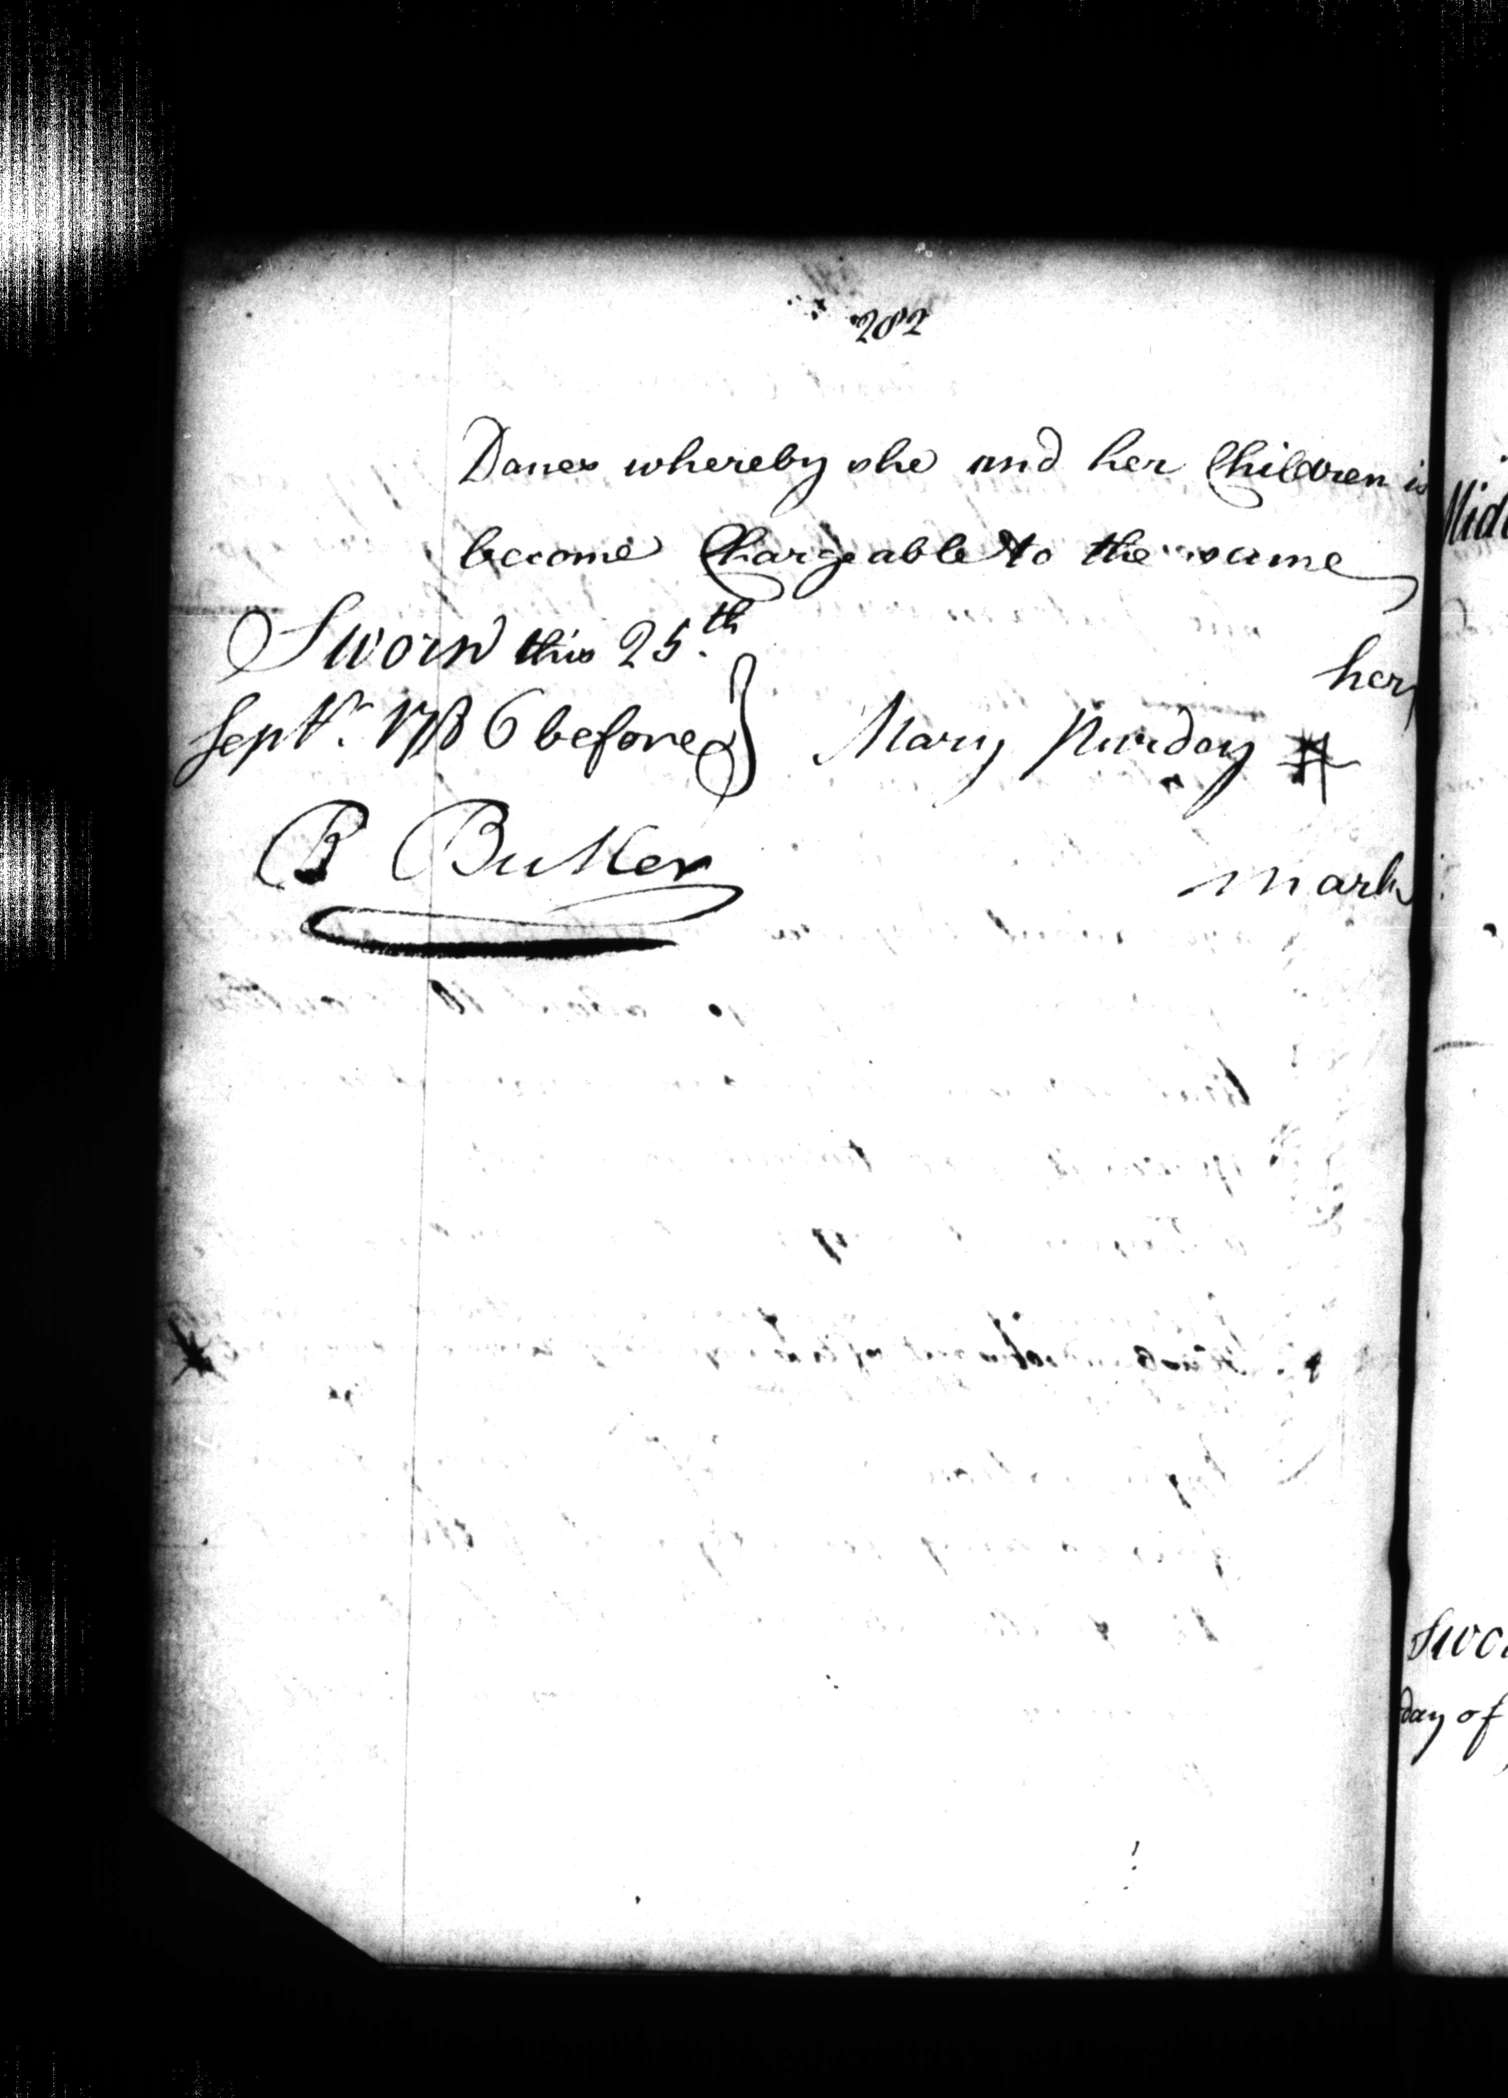 282
Danes whereby she and her Children is
become Chargeable to the same
Sworn this 25.th
Septr. 1786 before } Mary Purday #
her
mark
B Butler
Midd
Swor
day of